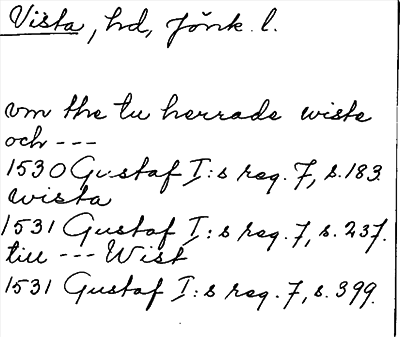 Vista, hd, Jönk. l.
vm the tu herrade wiste
och ---
1530 Gustaf I:s reg. 7, s. 183.
wista
1531 Gustaf I:s reg. 7, s. 237.
till --- Wist
1531 Gustaf I:s reg. 7, s. 399.